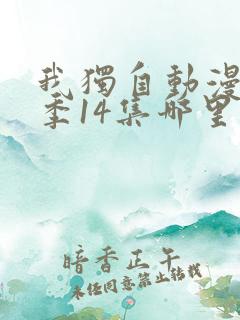 我獨自動漫
季14集哪里
暗香正午
未经同意禁止转载